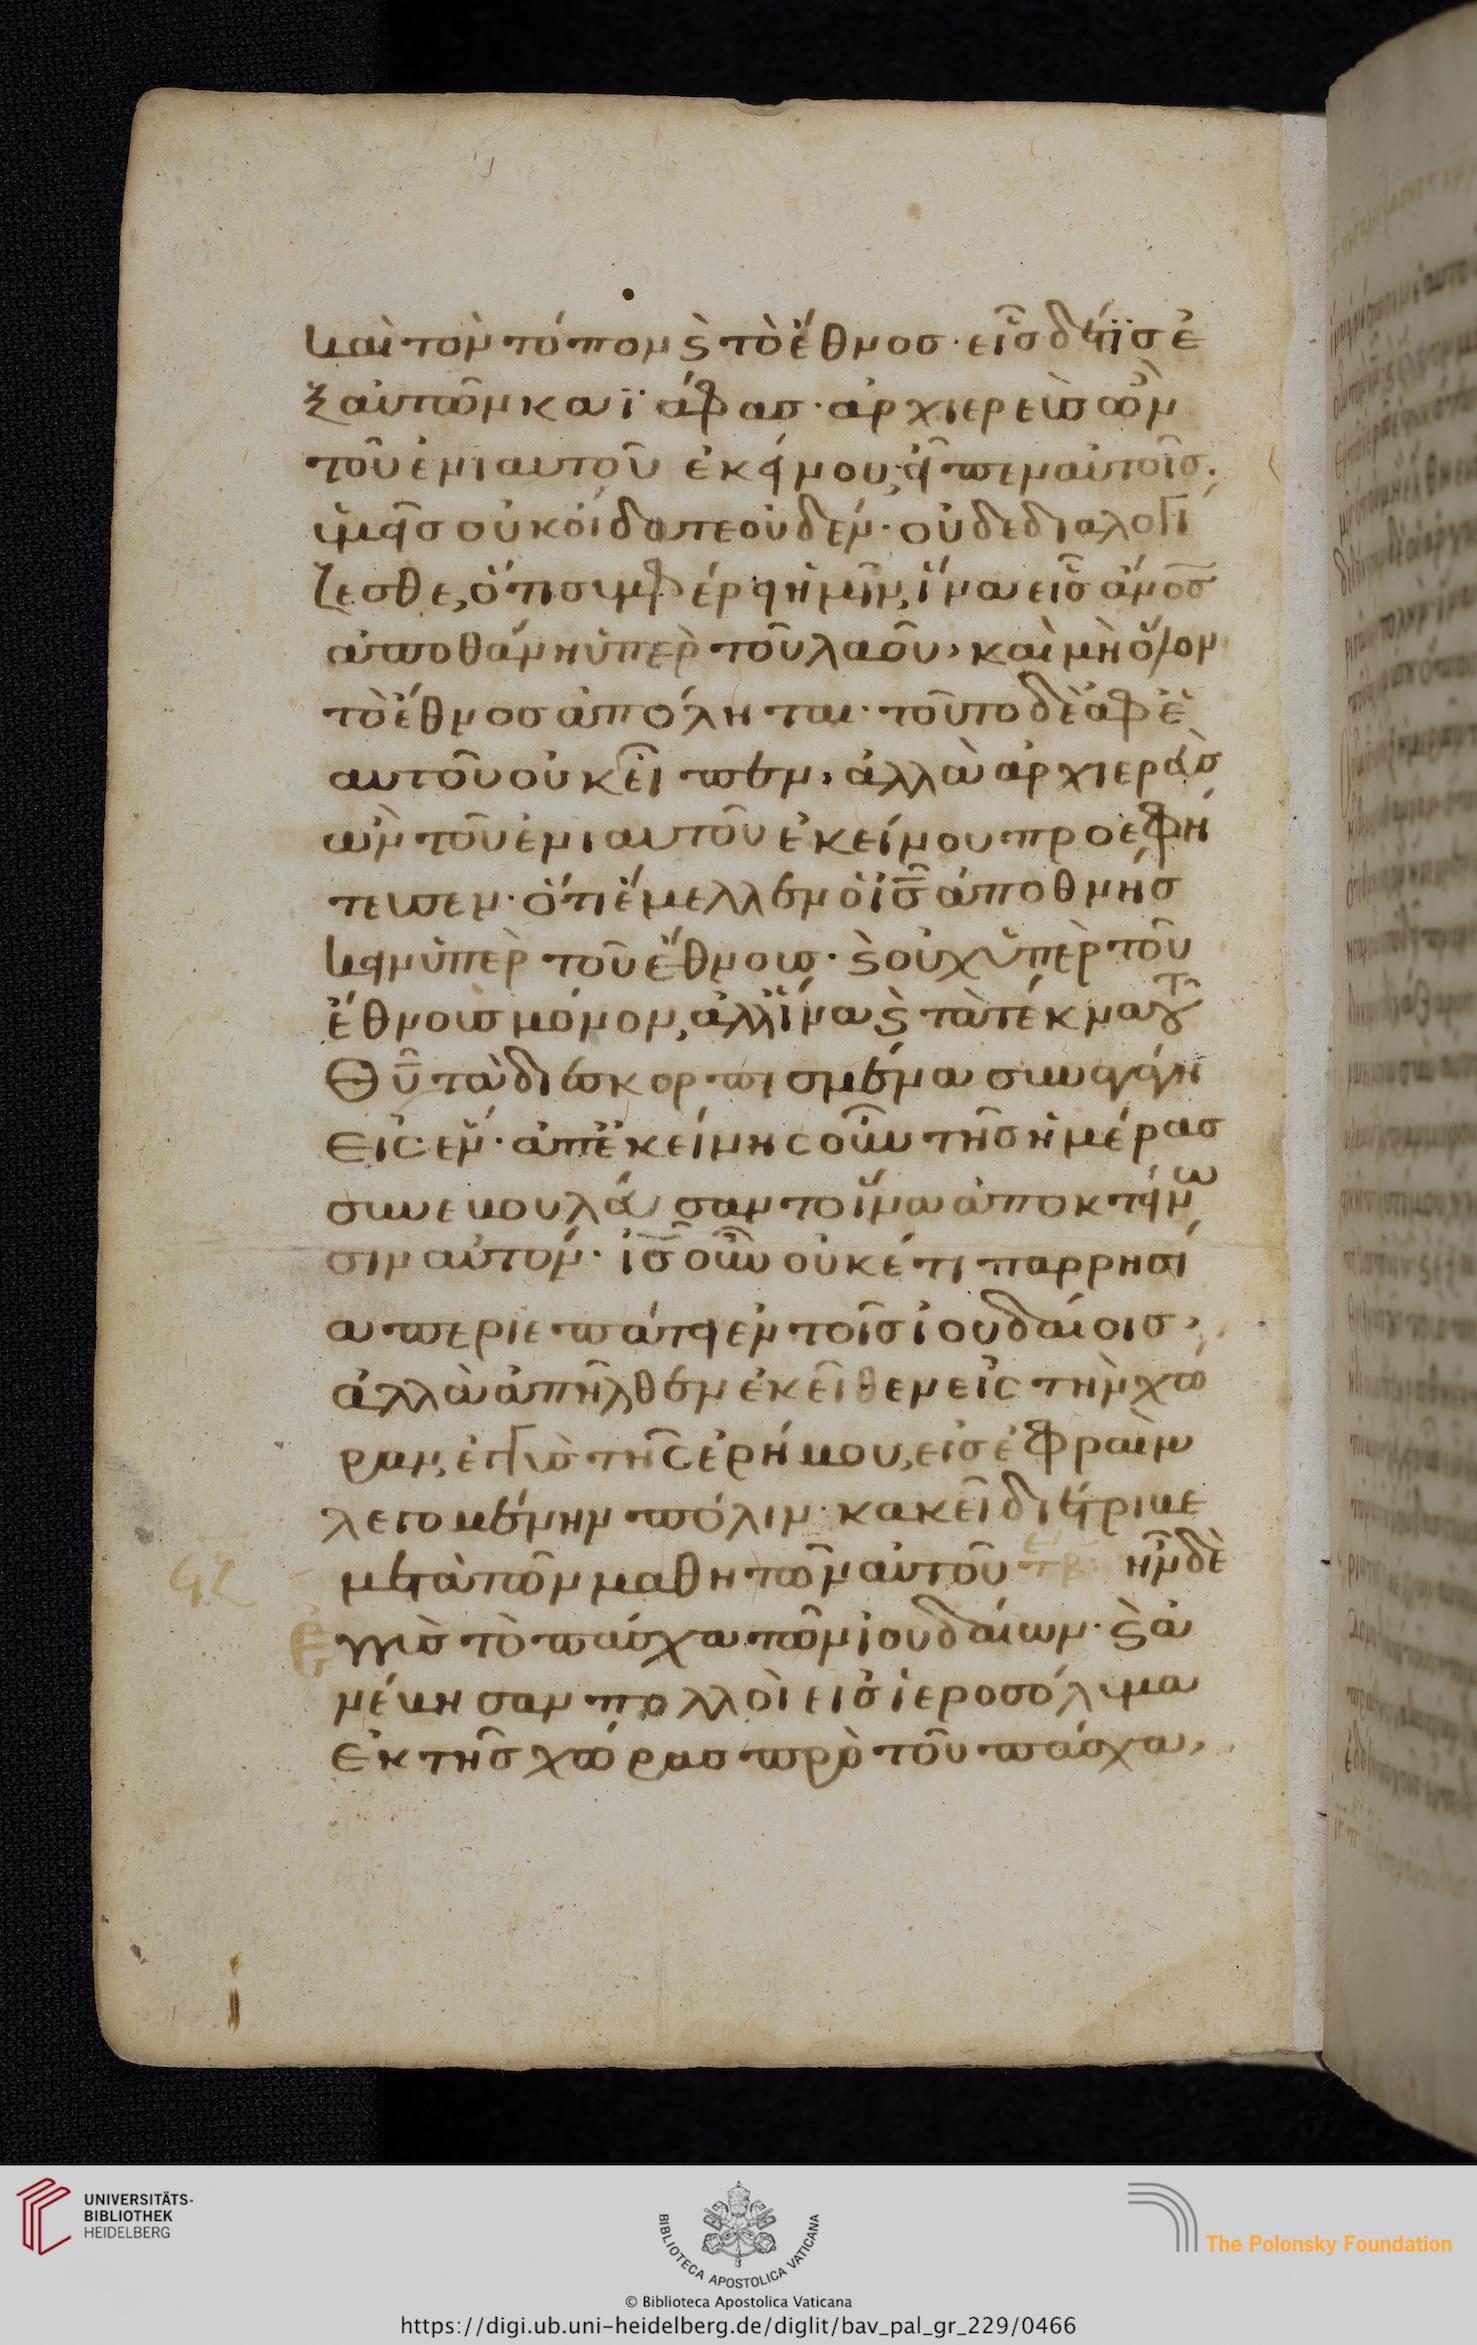 καὶ τὸν τόπον ϗ τὸ ἔθνος· εἷς δέ τϊς ἐ
ξ αὐτῶν καϊάφας· ἀρχιερεὺς ὢν
τοῦ ἐνιαυτοῦ ἐκείνου, εἶπεν αὐτοῖς·
ὑμεῖς οὐκ οἴδατε οὐδέν· οὐδὲ διαλογί
ζεσθε, ὅτι συμφέρει ἡμῖν, ἵνα εἷς ἄν̅ο̅ς̅
ἀποθάνη ὑπὲρ τοῦ λαοῦ, καὶ μὴ ὅλον
τὸ ἔθνος ἀπόληται· τοῦτο δὲ ἀφ' ἑ
αυτοῦ οὐκ εἶπεν, ἀλλὰ ἀρχιερεὺς
ὢν τοῦ ἐνιαυτοῦ ἐκείνου προεφή
τευσεν· ὅτι ἔμελλεν ὁ ι̅ς̅ ἀποθνήσ
κειν ὑπὲρ τοῦ ἔθνους· ϗ οὐχ ὑπὲρ τοῦ
ἔθνους μόνον, ἀλλ' ἵνα ϗ τὰ τέκνα τοῦ
θ̅υ̅ τὰ διεσκορπισμένα συναγάγη
εἰς ἕν· ἀπ' ἐκείνης οὖν τῆς ἡμέρας
συνεβουλεύσαντο ἵνα ἀποκτείνω
σιν αὐτόν· ι̅ς̅ οὖν οὐκέτι παρρησί
α περιεπάτει ἐν τοῖς ἰουδαίοις,
ἀλλὰ ἀπῆλθεν ἐκεῖθεν εἰς τὴν χώ
ραν, ἐγγὺς τῆς ἐρήμου, εἰς ἐφραὶμ
λεγομένην πόλιν· κακεῖ διέτριβε
μετὰ τῶν μαθητῶν αὐτοῦ ἦν δὲ
ἐγγὺς τὸ πάσχα τῶν ἰουδαίων· ϗ ἀ
νέβησαν πολλοὶ εἰς ἱεροσόλυμα
ἐκ τῆς χώρας πρὸ τοῦ πάσχα,
UNIVERSITÄTS-
BIBLIOTHEK
HEIDELBERG
BIBLIOTECA APOSTOLICA VATICANA
The Polonsky Foundation
© Biblioteca Apostolica Vaticana
https://digi.ub.uni-heidelberg.de/diglit/bav_pal_gr_229/0466